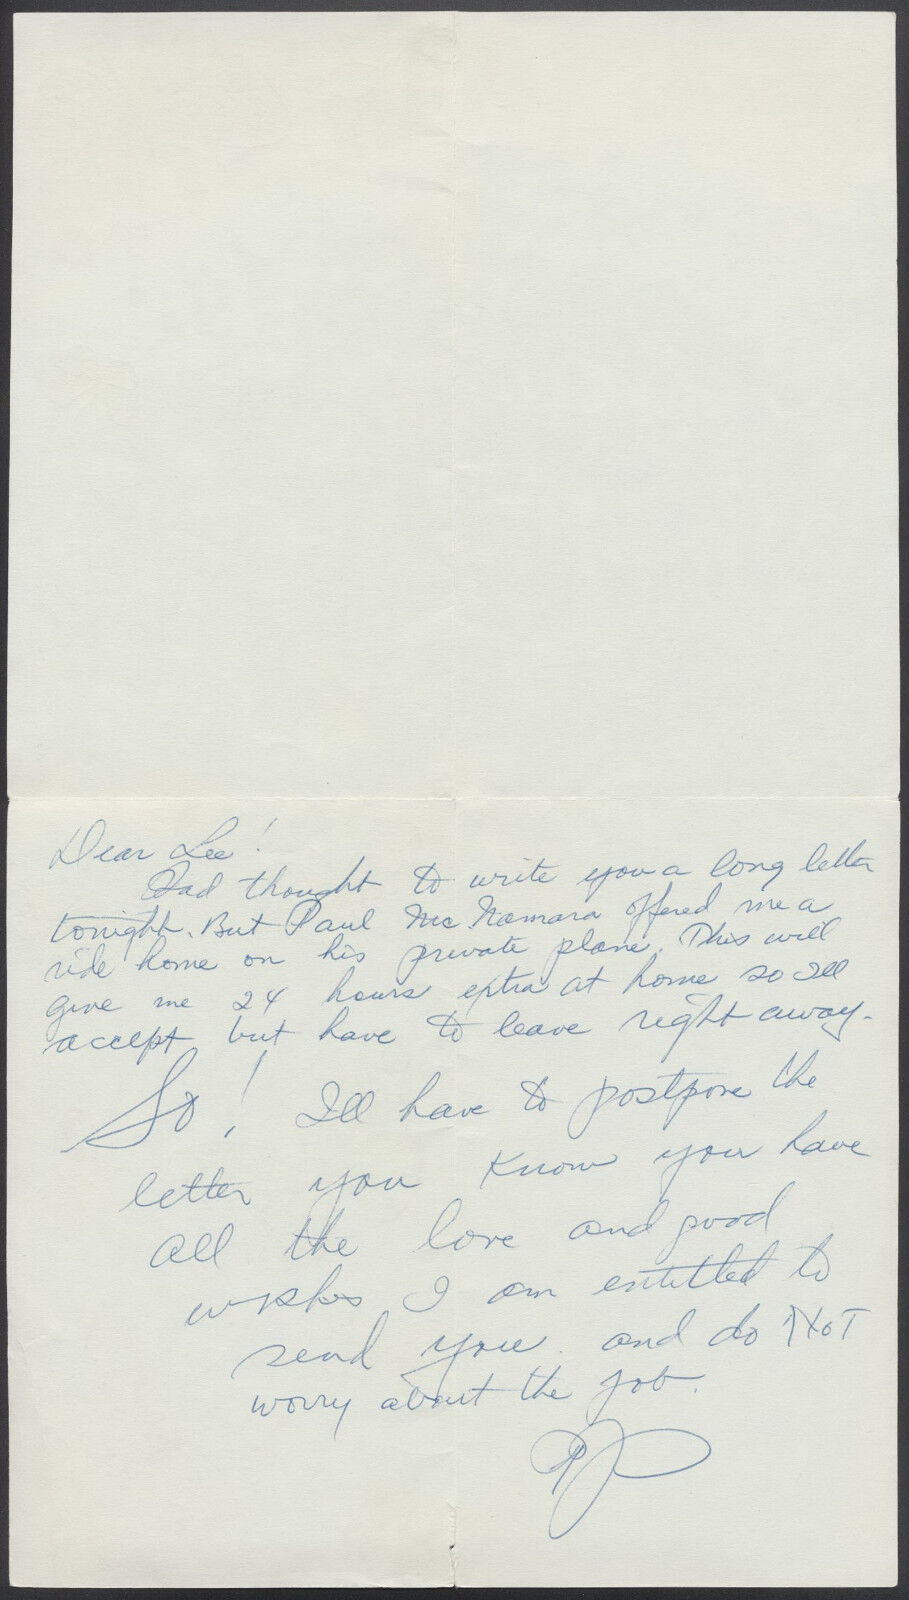 Dear Lee!
Had thought to write you a long letter
tonight. But Paul McNamara offered me a
ride home on his private plane. This will
give me 24 hours extra at home so I'll
accept but have to leave right away.
So! I'll have to postpone the
letter you know you have
all the love and good
wishes I am entitled to
send you and do NOT
worry about the job.